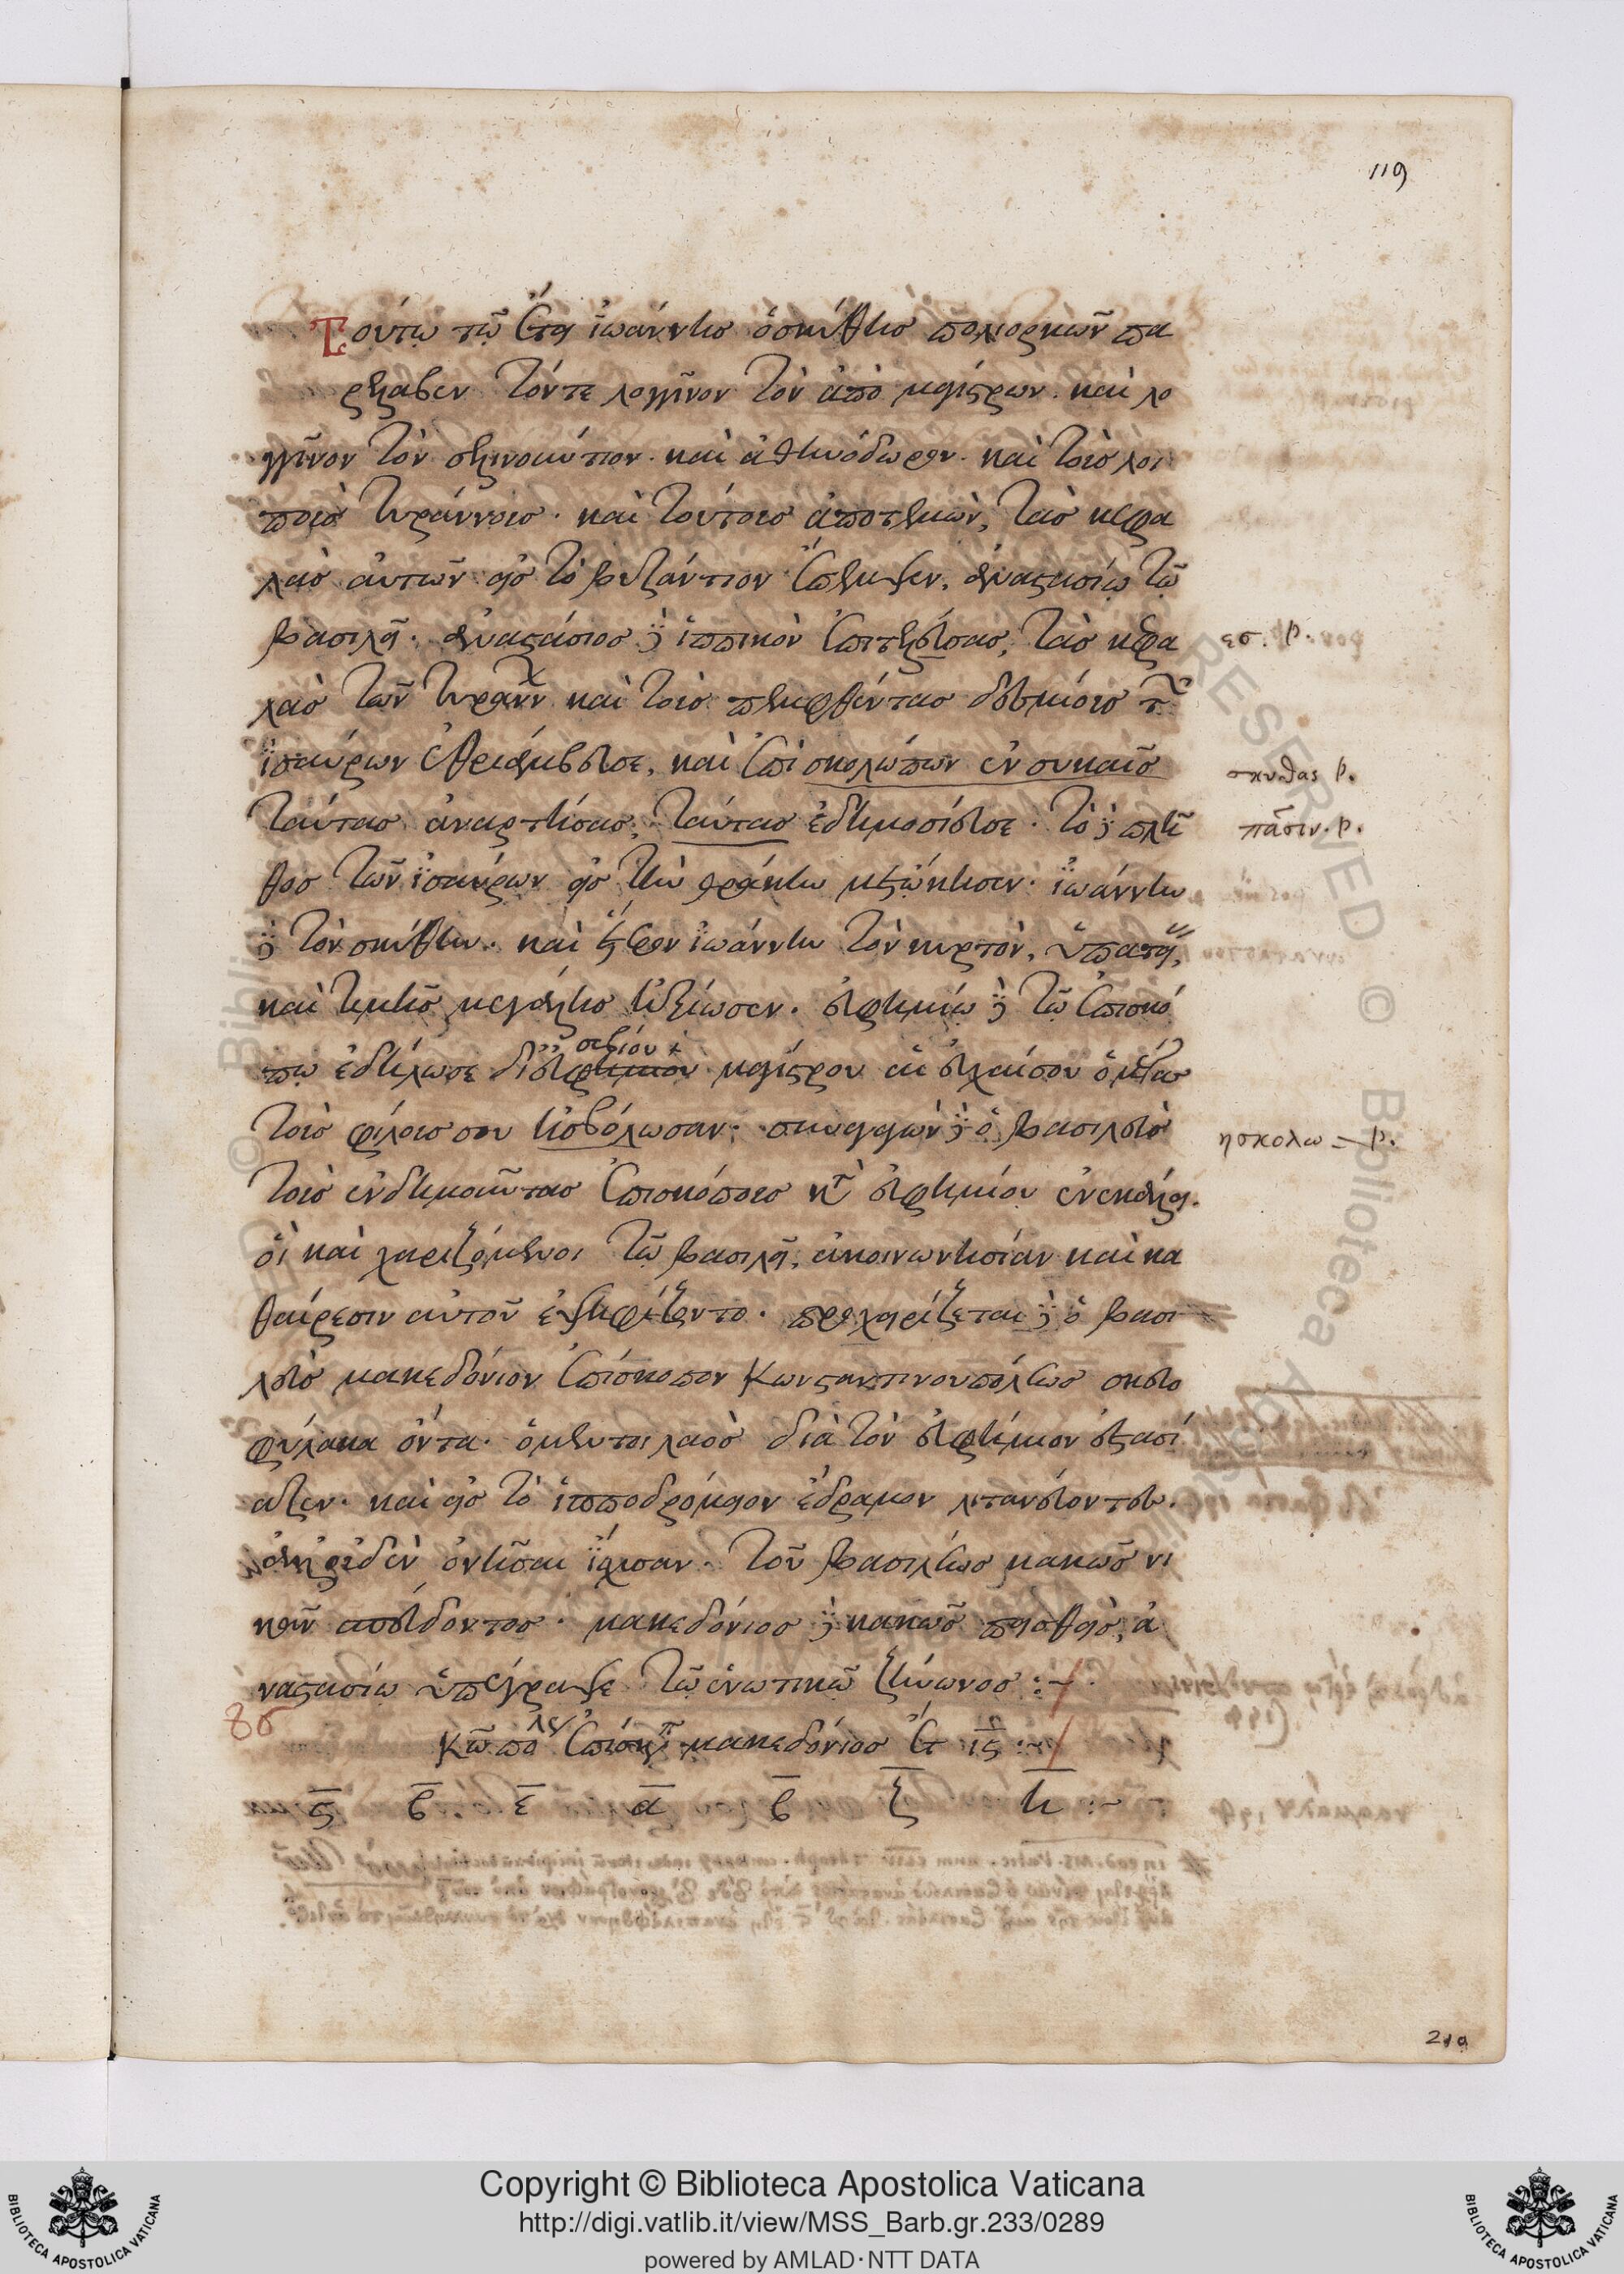 119
Τούτῳ τῷ ἔτει ἰωάννησ ὁ σκύθησ πολιορκῶν πα
ρέλαβεν τόν τε λογγῖνον τὸν ἀπὸ μαγίστρων. καὶ λο
γγῖνον τὸν σελινούντιον. καὶ ἀθηνόδωρον. καὶ τοὺσ λοι
ποὺσ τυράννουσ. καὶ τούτουσ ἀποτεμὼν, τὰσ κεφα
λὰσ αὐτῶν εἰσ τὸ βυζάντιον ἔπεμψεν, ἀναστασίῳ τῷ
βασιλεῖ. ἀναστάσιοσ δὲ ἱππικὸν ἐπιτελεύσασ, τὰσ κεφα
λὰσ τῶν τυράνν καὶ τοὺσ πεμφθέντασ δεσμίουσ τ
ἰσαύρων ἐθριάμβευσε, καὶ ἐπὶ σκολώπων ἐν συκαῖσ
ταύτασ ἀναρτήσασ, ταύτασ ἐδημοσίευσε. τὸ δὲ πλῆ
θοσ τῶν ἰσαύρων εἰσ τὴν θράκην μετῴκησεν. ἰωάννην
δὲ τὸν σκύθην. καὶ ἕτερον ἰωάννην τὸν κυρτὸν, ὑπατεί
καὶ τιμῆσ μεγάλησ ἠξίωσεν. εὐφημίῳ δὲ τῷ ἐπισκό
πῳ ἐδήλωσε δι' εὐφημίου σεβίου μαγίστρου αἱ εὐχαί σου ὁ μέγασ
τοὺσ φίλουσ σου ἠσβόλωσαν. σκυφῶν δὲ ὁ βασιλεὺσ
τοὺσ ἐνδημοῦντασ ἐπισκόπουσ κτ εὐφημίου ἐνεκάλει.
οἱ καὶ χαριζόμενοι τῷ βασιλεῖ, ἀκοινωνησίαν καὶ κα
θαίρεσιν αὐτοῦ ἐψηφίζοντο. προχειρίζεται δὲ ὁ βασι
λεὺσ μακεδόνιον ἐπίσκοπον κωνσταντινουπόλεωσ σκευο
φύλακα ὄντα. ὁ μέντοι λαὸσ διὰ τὸν εὐφήμιον ἐστασί
αζεν. καὶ εἰσ τὸ ἱπποδρόμιον ἔδραμον λιτανεύοντεσ.
ἀλλ' οὐδὲν ὀνῆσαι ἴσχυσαν. τοῦ βασιλέωσ κακῶσ νι
κᾶν σπεύδοντοσ. μακεδόνιοσ δὲ κακῶσ πεισθεὶσ, ἀ
ναστασίῳ ὑπέγραψε τῷ ἑνωτικῷ ζήνωνοσ :~
κω πολ ἐπίσκπ μακεδόνιοσ ἔτ ις :~
ς β ε α β ζ η :~
εσ. p.
σκυθας p.
πᾶσιν. p.
ησκολω = p.
219
Copyright © Biblioteca Apostolica Vaticana
http://digi.vatlib.it/view/MSS_Barb.gr.233/0289
powered by AMLAD·NTT DATA
BIBLIOTECA APOSTOLICA VATICANA
BIBLIOTECA APOSTOLICA VATICANA